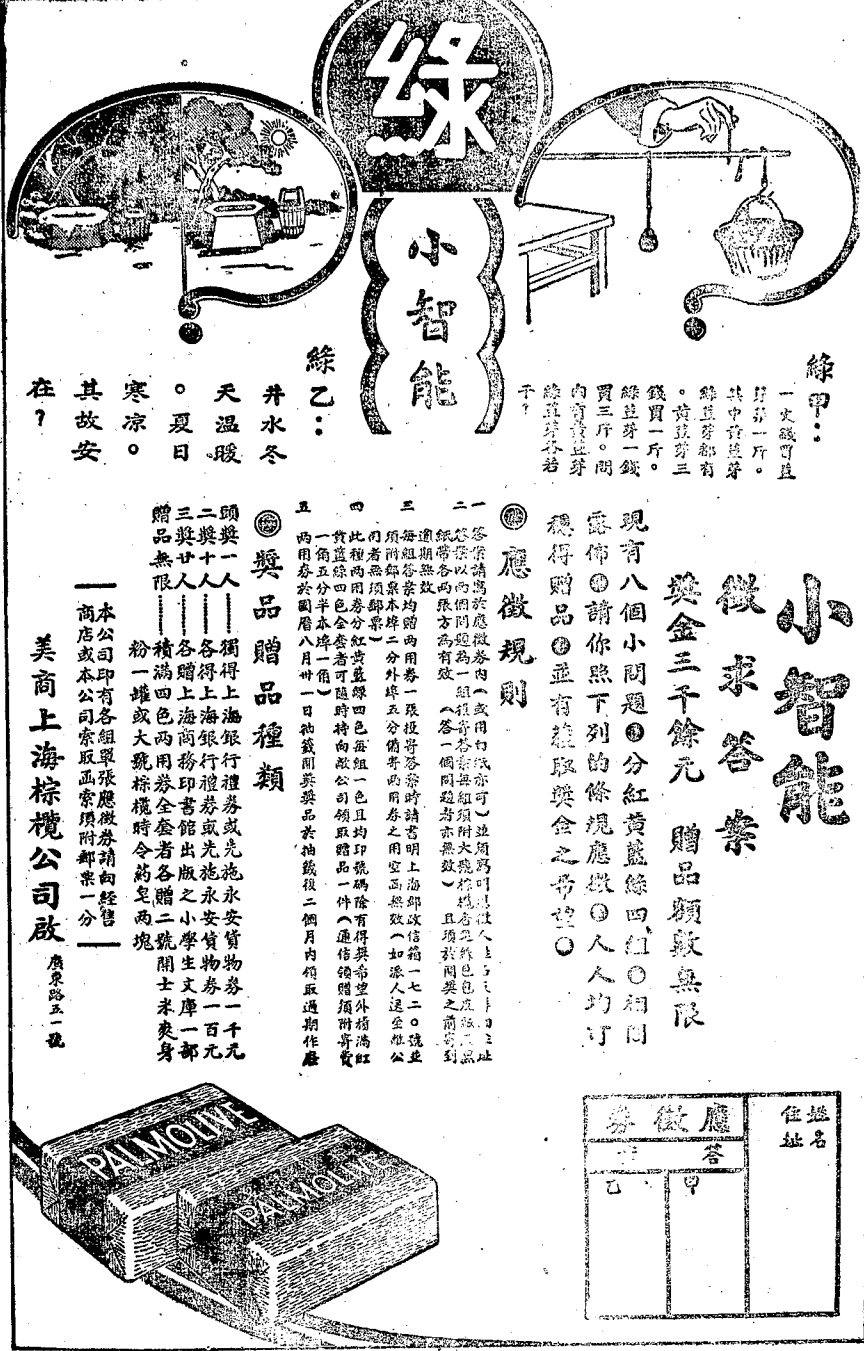 綠
小智能
綠甲：
一文錢買荳
芽菜一斤。
其中黃荳芽
綠荳芽都有
。黃荳芽三
錢買一斤。
綠荳芽一錢
買三斤。問
內有黃荳芽
綠荳芽各若
干？
綠乙：
井水冬
天温暖
。夏日
寒凉。
其故安
在？
小智能
徵求答案
獎金三千餘元 贈品額數無限
現有八個小問題 分紅黃藍綠四組 相間
露佈 請你照下列的條規應徵 人人均可
穩得贈品 並有獲取獎金之希望
應徵規則
一 答案請寫於應徵券內（或用白紙亦可）並須寫明應徵人姓名
二 答案以兩個問題為一組投寄答案每組須附大號棕欖香皂綠色包皮紙及黑
紙帶各兩張方為有效 （答一個問題者亦無效） 且須於開獎之前寄到
過期無效
三 每組答案均贈兩用券一張投寄答案時請書明上海郵政信箱一七二〇號並
須附郵票本埠二分外埠五分備寄兩用券之用空函無效（如派人送至敝公
司者無須郵票）
四 此種兩用券分紅黃藍綠四色每組一色且均印號碼除有得獎希望外積滿紅
黃藍綠四色全套者可隨時持向敝公司領取贈品一件（通信領贈須附寄費
一角五分半本埠一角）
五 兩用券於國曆八月卅一日抽籤開獎獎品於抽籤後二個月內領取過期作廢
獎品贈品種類
頭獎一人——獨得上海銀行禮券或先施永安貨物券一千元
二獎十人——各得上海銀行禮券或先施永安貨物券一百元
三獎廿人——各贈上海商務印書館出版之小學生文庫一部
贈品無限——積滿四色兩用券全套者各贈二號開士米爽身
粉一罐或大號棕欖時令葯皂兩塊
本公司印有各組單張應徵券請向經售
商店或本公司索取函索須附郵票一分
美商上海棕欖公司啟
廣東路五一號
PALMOLIVE
PALMOLIVE
姓名
住址
應徵券
答
甲
乙